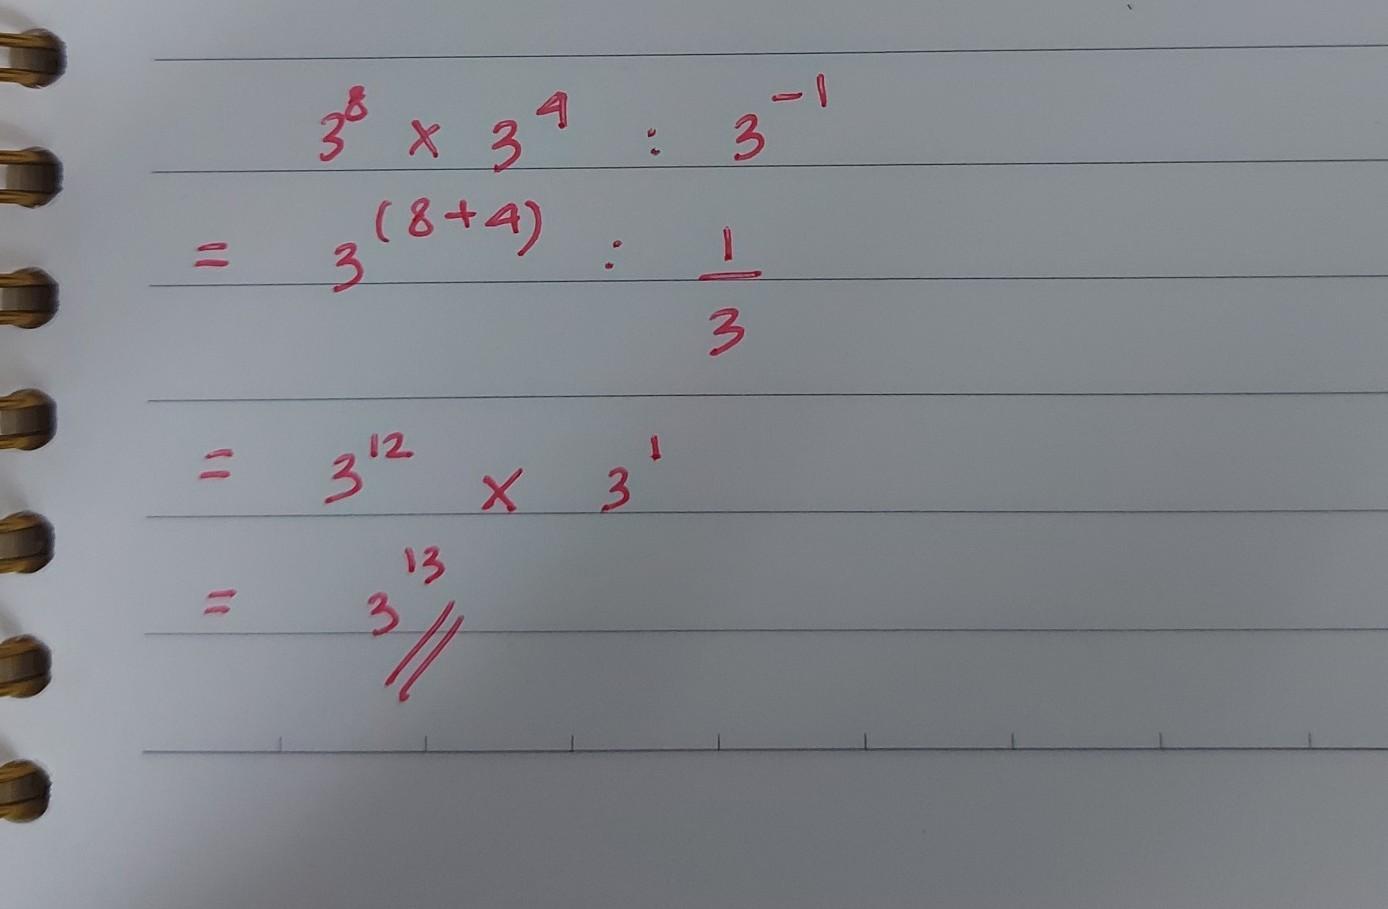 3⁸ × 3⁴ : 3⁻¹
= 3⁽⁸⁺⁴⁾ : 1/3
= 3¹² × 3¹
= 3¹³ //